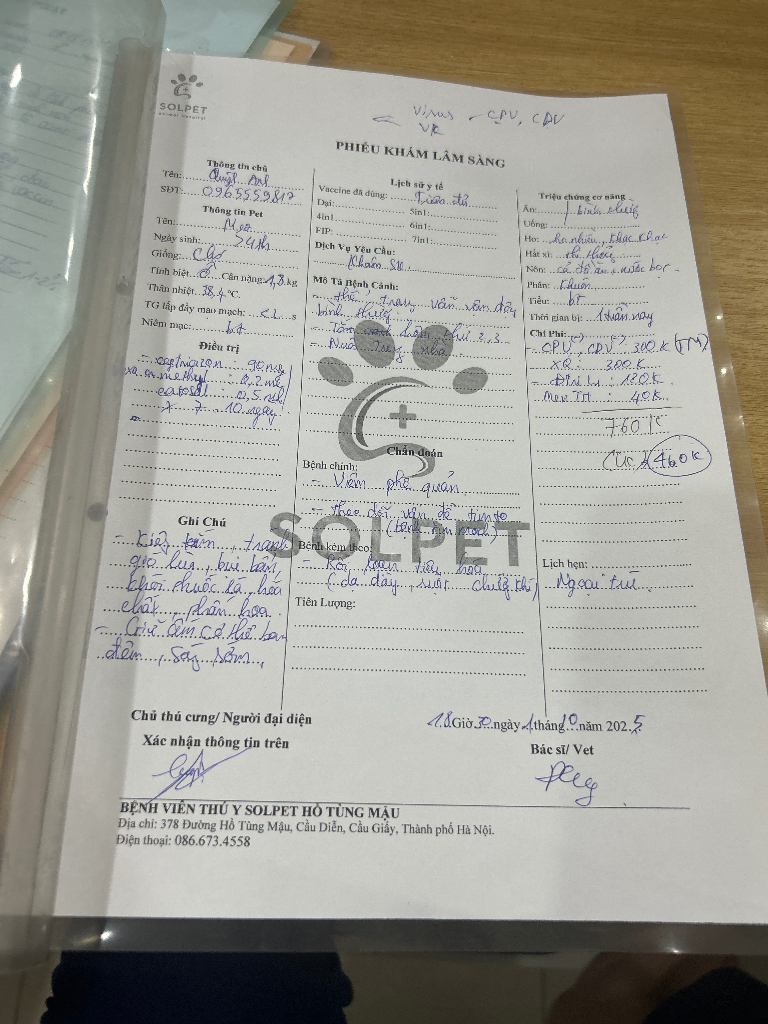 SOLPET
Animal Hospital
Virus - CPV, CDV
VR
PHIẾU KHÁM LÂM SÀNG
Thông tin chủ
Tên: Quỳnh Anh
SĐT: 0965559817
Thông tin Pet
Tên:
Ngày sinh: 24th
Giống: Chó
Tính biệt: Cân nặng: 1,8 kg
Thân nhiệt: 38,4 °C.
TG lấp đầy mao mạch: <2 s
Niêm mạc: bt
Điều trị
90mg
: 0,2 ml
catosal : 0,5 ml
7 - 10 ngày
Ghi Chú
- Kiêng tắm, tránh
gió lùa, bụi bẩn,
khói thuốc lá, hóa
chất, phấn hoa
- Giữ ấm cơ thể ban
đêm, sáng sớm,
Lịch sử y tế
Vaccine đã dùng:
Dại:
5in1:
4in1:
6in1:
FIP:
7in1:
Dịch Vụ Yêu Cầu:
Khám SK
Mô Tả Bệnh Cảnh:
vẫn vận động
bình thường
- Nuôi trong nhà
Chẩn đoán
Bệnh chính:
- Viêm phế quản
- Theo dõi vấn đề
(bệnh tim mạch)
Bệnh kèm theo:
- Rối loạn tiêu hóa
(dạ dày, ruột
Tiên Lượng:
Triệu chứng cơ năng
Ăn: bình thường
Uống:
Ho: ho nhiều, khạc khạc
Hắt xì: thi thoảng
Nôn: cả đồ ăn, nước bọt
Phân: khuôn
Tiểu: bt
Thời gian bị: 1 tuần nay
Chi Phí:
- CPV, CDV: 300K (TM)
XQ: 300K
: 120K
Men TH: 40K
760K
460K
Lịch hẹn:
Ngoại trú
18 Giờ 30 ngày 1 tháng 10 năm 2025
Chủ thú cưng/ Người đại diện
Xác nhận thông tin trên
Bác sĩ/ Vet
BỆNH VIÊN THÚ Y SOLPET HỒ TÙNG MẬU
Địa chỉ: 378 Đường Hồ Tùng Mậu, Cầu Diễn, Cầu Giấy, Thành phố Hà Nội.
Điện thoại: 086.673.4558
SOLPET